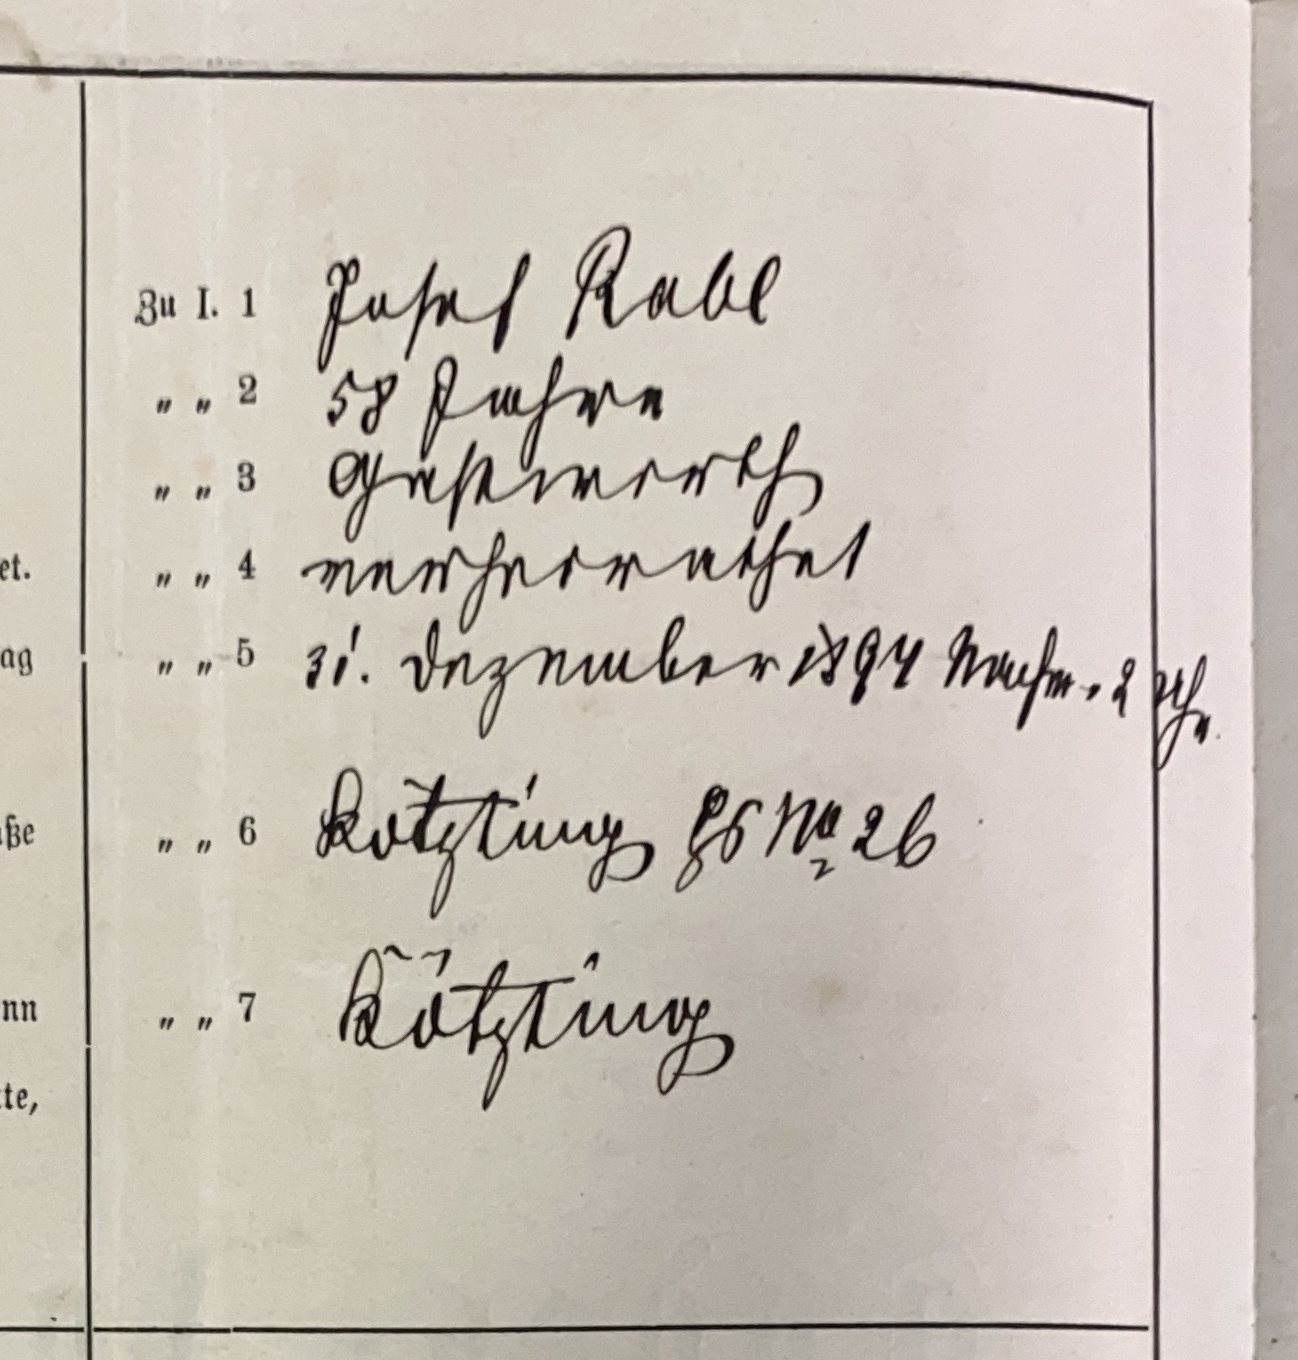 Zu I. 1 Josef Rabl
" " 2 58 Jahre
" " 3 Gastwirth
et. " " 4 verheirathet
ag " " 5 31. Dezember 1894 Nachm. 2 Uhr
ße " " 6 Kötzting Hs No 26
nn " " 7 Kötzting
tte,